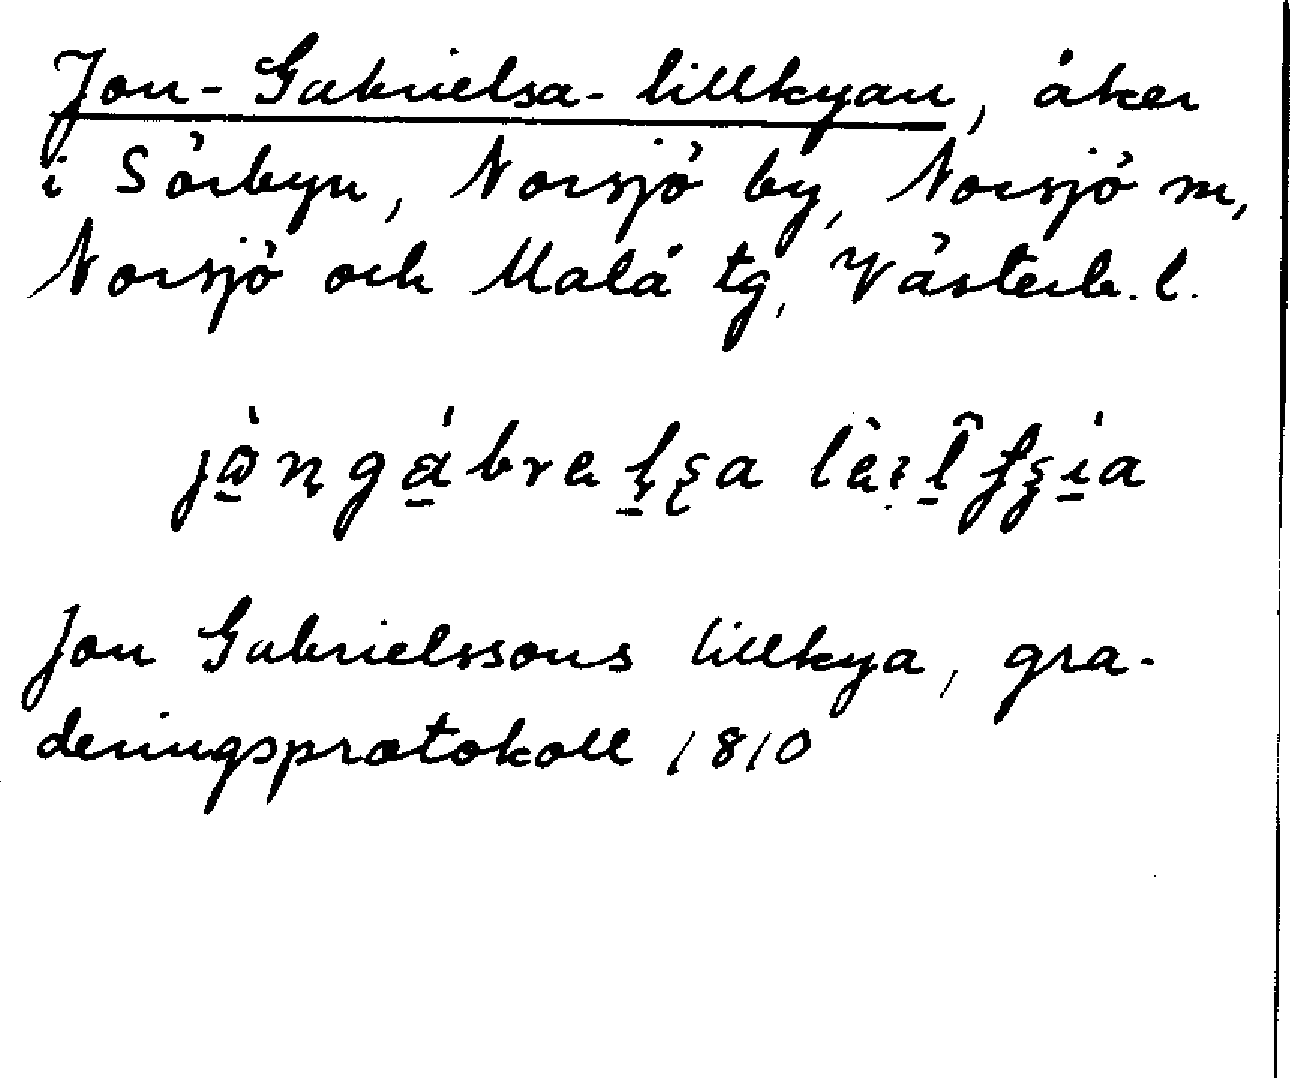 Jon-Gabrielsa-lillkyan, åker
i Sörbyn, Norsjö by, Norsjö sn,
Norsjö och Malå tg, Västerb. l.
Jon Gabrielssons lillkya, gra-
deringsprotokoll 1810